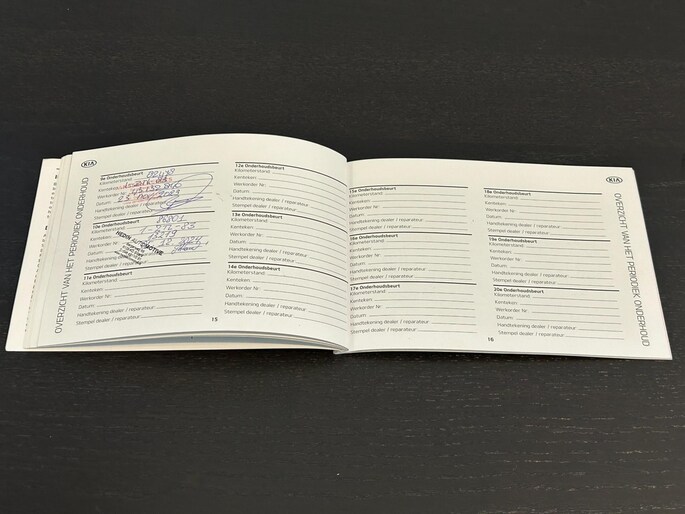 KIA
OVERZICHT VAN HET PERIODIEK ONDERHOUD
9e Onderhoudsbeurt
Kilometerstand
Kenteken
Werkorder Nr.
Datum:
Handtekening dealer
Stempel dealer / reparateur
10e Onderhoudsbeurt
Kilometerstand 86801
Kenteken:
Werkorder Nr.
Datum:
Handtekening dealer / reparateur
Stempel dealer / reparateur
HEDIN AUTOMOTIVE
11e Onderhoudsbeurt
Kilometerstand
Kenteken:
Werkorder Nr:
Datum:
Handtekening dealer / reparateur
Stempel dealer / reparateur
12e Onderhoudsbeurt
Kilometerstand
Kenteken:
Werkorder Nr:
Datum:
Handtekening dealer / reparateur
Stempel dealer / reparateur
13e Onderhoudsbeurt
Kilometerstand
Kenteken:
Werkorder Nr:
Datum:
Handtekening dealer / reparateur
Stempel dealer / reparateur
14e Onderhoudsbeurt
Kilometerstand
Kenteken:
Werkorder Nr:
Datum:
Handtekening dealer / reparateur
Stempel dealer / reparateur
15
15e Onderhoudsbeurt
Kilometerstand
Kenteken:
Werkorder Nr:
Datum:
Handtekening dealer / reparateur
Stempel dealer / reparateur
16e Onderhoudsbeurt
Kilometerstand
Kenteken:
Werkorder Nr:
Datum:
Handtekening dealer / reparateur
Stempel dealer / reparateur
17e Onderhoudsbeurt
Kilometerstand
Kenteken:
Werkorder Nr:
Datum:
Handtekening dealer / reparateur
Stempel dealer / reparateur
18e Onderhoudsbeurt
Kilometerstand
Kenteken:
Werkorder Nr:
Datum:
Handtekening dealer / reparateur
Stempel dealer / reparateur
19e Onderhoudsbeurt
Kilometerstand
Kenteken:
Werkorder Nr:
Datum:
Handtekening dealer / reparateur
Stempel dealer / reparateur
20e Onderhoudsbeurt
Kilometerstand
Kenteken:
Werkorder Nr:
Datum:
Handtekening dealer / reparateur
Stempel dealer / reparateur
16
KIA
OVERZICHT VAN HET PERIODIEK ONDERHOUD